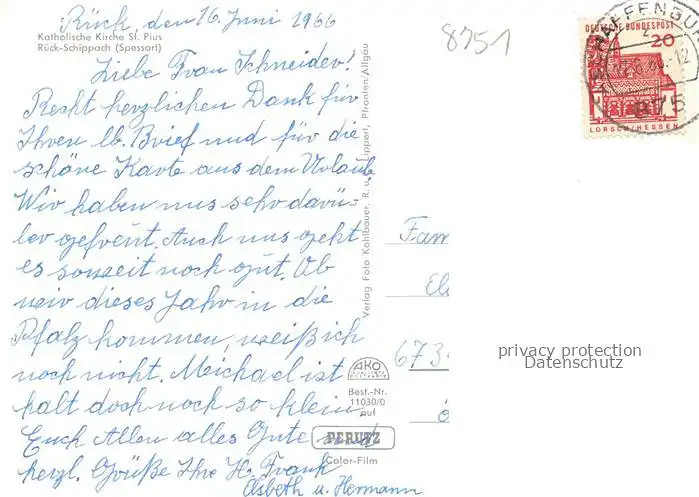 Rück, den 16. Juni 1966
Katholische Kirche St. Pius
Rück-Schippach (Spessart)
8751
Liebe Frau Schneider!
Recht herzlichen Dank für
Ihren lb. Brief und für die
schöne Karte aus dem Urlaub.
Wir haben uns sehr darü-
ber gefreut. Auch uns geht
es soweit noch gut. Ob
wir dieses Jahr in die
Pfalz kommen, weiß ich
noch nicht. Michael ist
halt doch noch so klein.
Euch Allen alles Gute und
herzl. Grüße Ihre H. Frank
Asbeth u. Hermann
Verlag Foto Kohlbauer, R. u. Lippert, Pfronten/Allgäu
AKO
Best.-Nr.
11030/0
auf
PERUTZ
Color-Film
DEUTSCHE BUNDESPOST
20
LORSCH/HESSEN
875
Fam
673
privacy protection
Datenschutz